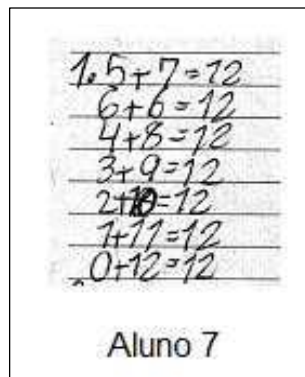 1. 5+7=12
6+6=12
4+8=12
3+9=12
2+10=12
1+11=12
0+12=12
Aluno 7